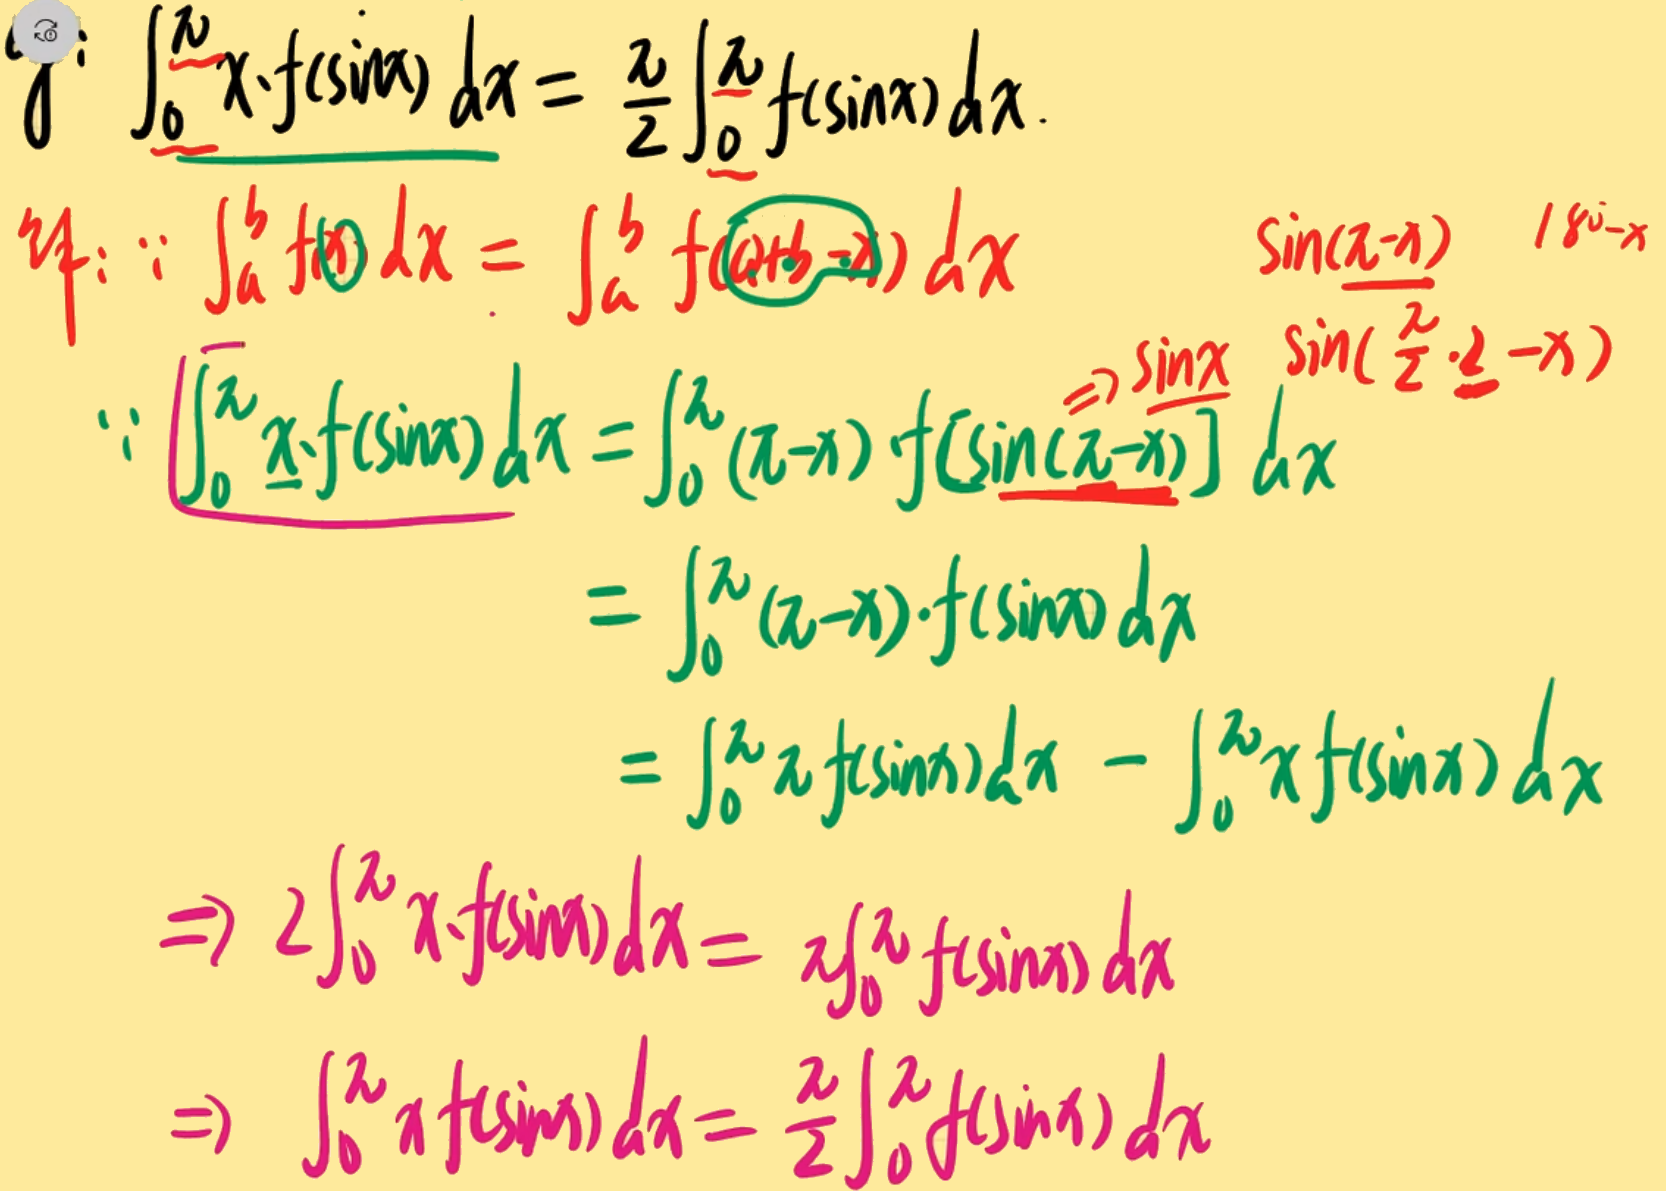 ∫₀^π x·f(sinx) dx = π/2 ∫₀^π f(sinx) dx.
∵ ∫ₐᵇ f(x) dx = ∫ₐᵇ f(a+b-x) dx
sin(π-x) 180°-x
⇒ sinx sin(π/2·2-x)
∵ ∫₀^π x·f(sinx) dx = ∫₀^π (π-x)·f[sin(π-x)] dx
= ∫₀^π (π-x)·f(sinx) dx
= ∫₀^π π f(sinx) dx - ∫₀^π x f(sinx) dx
⇒ 2∫₀^π x·f(sinx) dx = π∫₀^π f(sinx) dx
⇒ ∫₀^π x f(sinx) dx = π/2 ∫₀^π f(sinx) dx